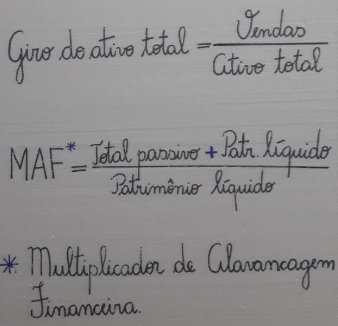 Giro do ativo total = Vendas / Ativo total
MAF* = Total passivo + Patr. líquido / Patrimônio líquido
* Multiplicador de Alavancagem
Financeira.